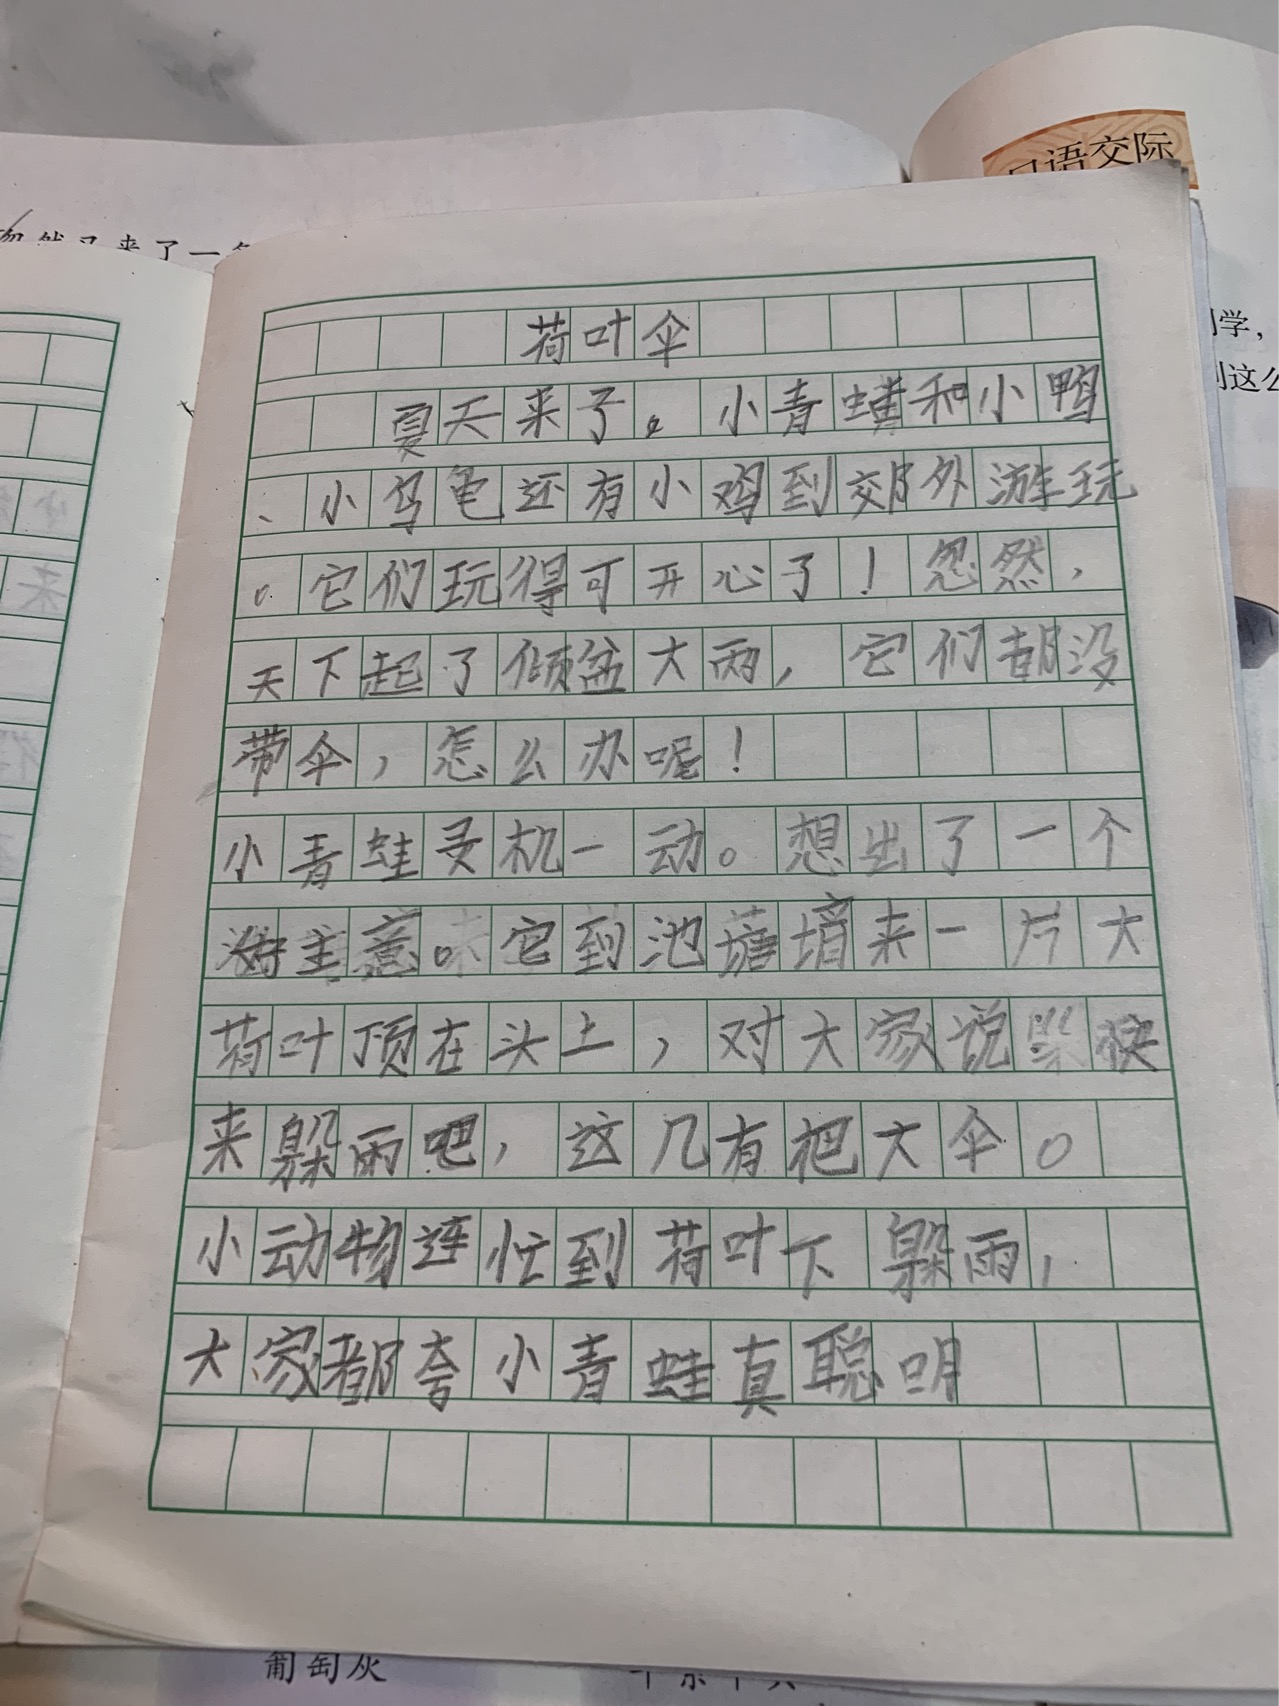 口语交际
忽然又来了一
荷叶伞
夏天来了。小青蛙和小鸭
、小乌龟还有小鸡到郊外游玩
。它们玩得可开心了！忽然，
天下起了倾盆大雨，它们都没
带伞，怎么办呢！
小青蛙灵机一动。想出了一个
好主意。它到池塘摘来一片大
荷叶顶在头上，对大家说快
来躲雨吧，这几有把大伞。
小动物连忙到荷叶下躲雨，
大家都夸小青蛙真聪明
学，
到这么
葡萄灰